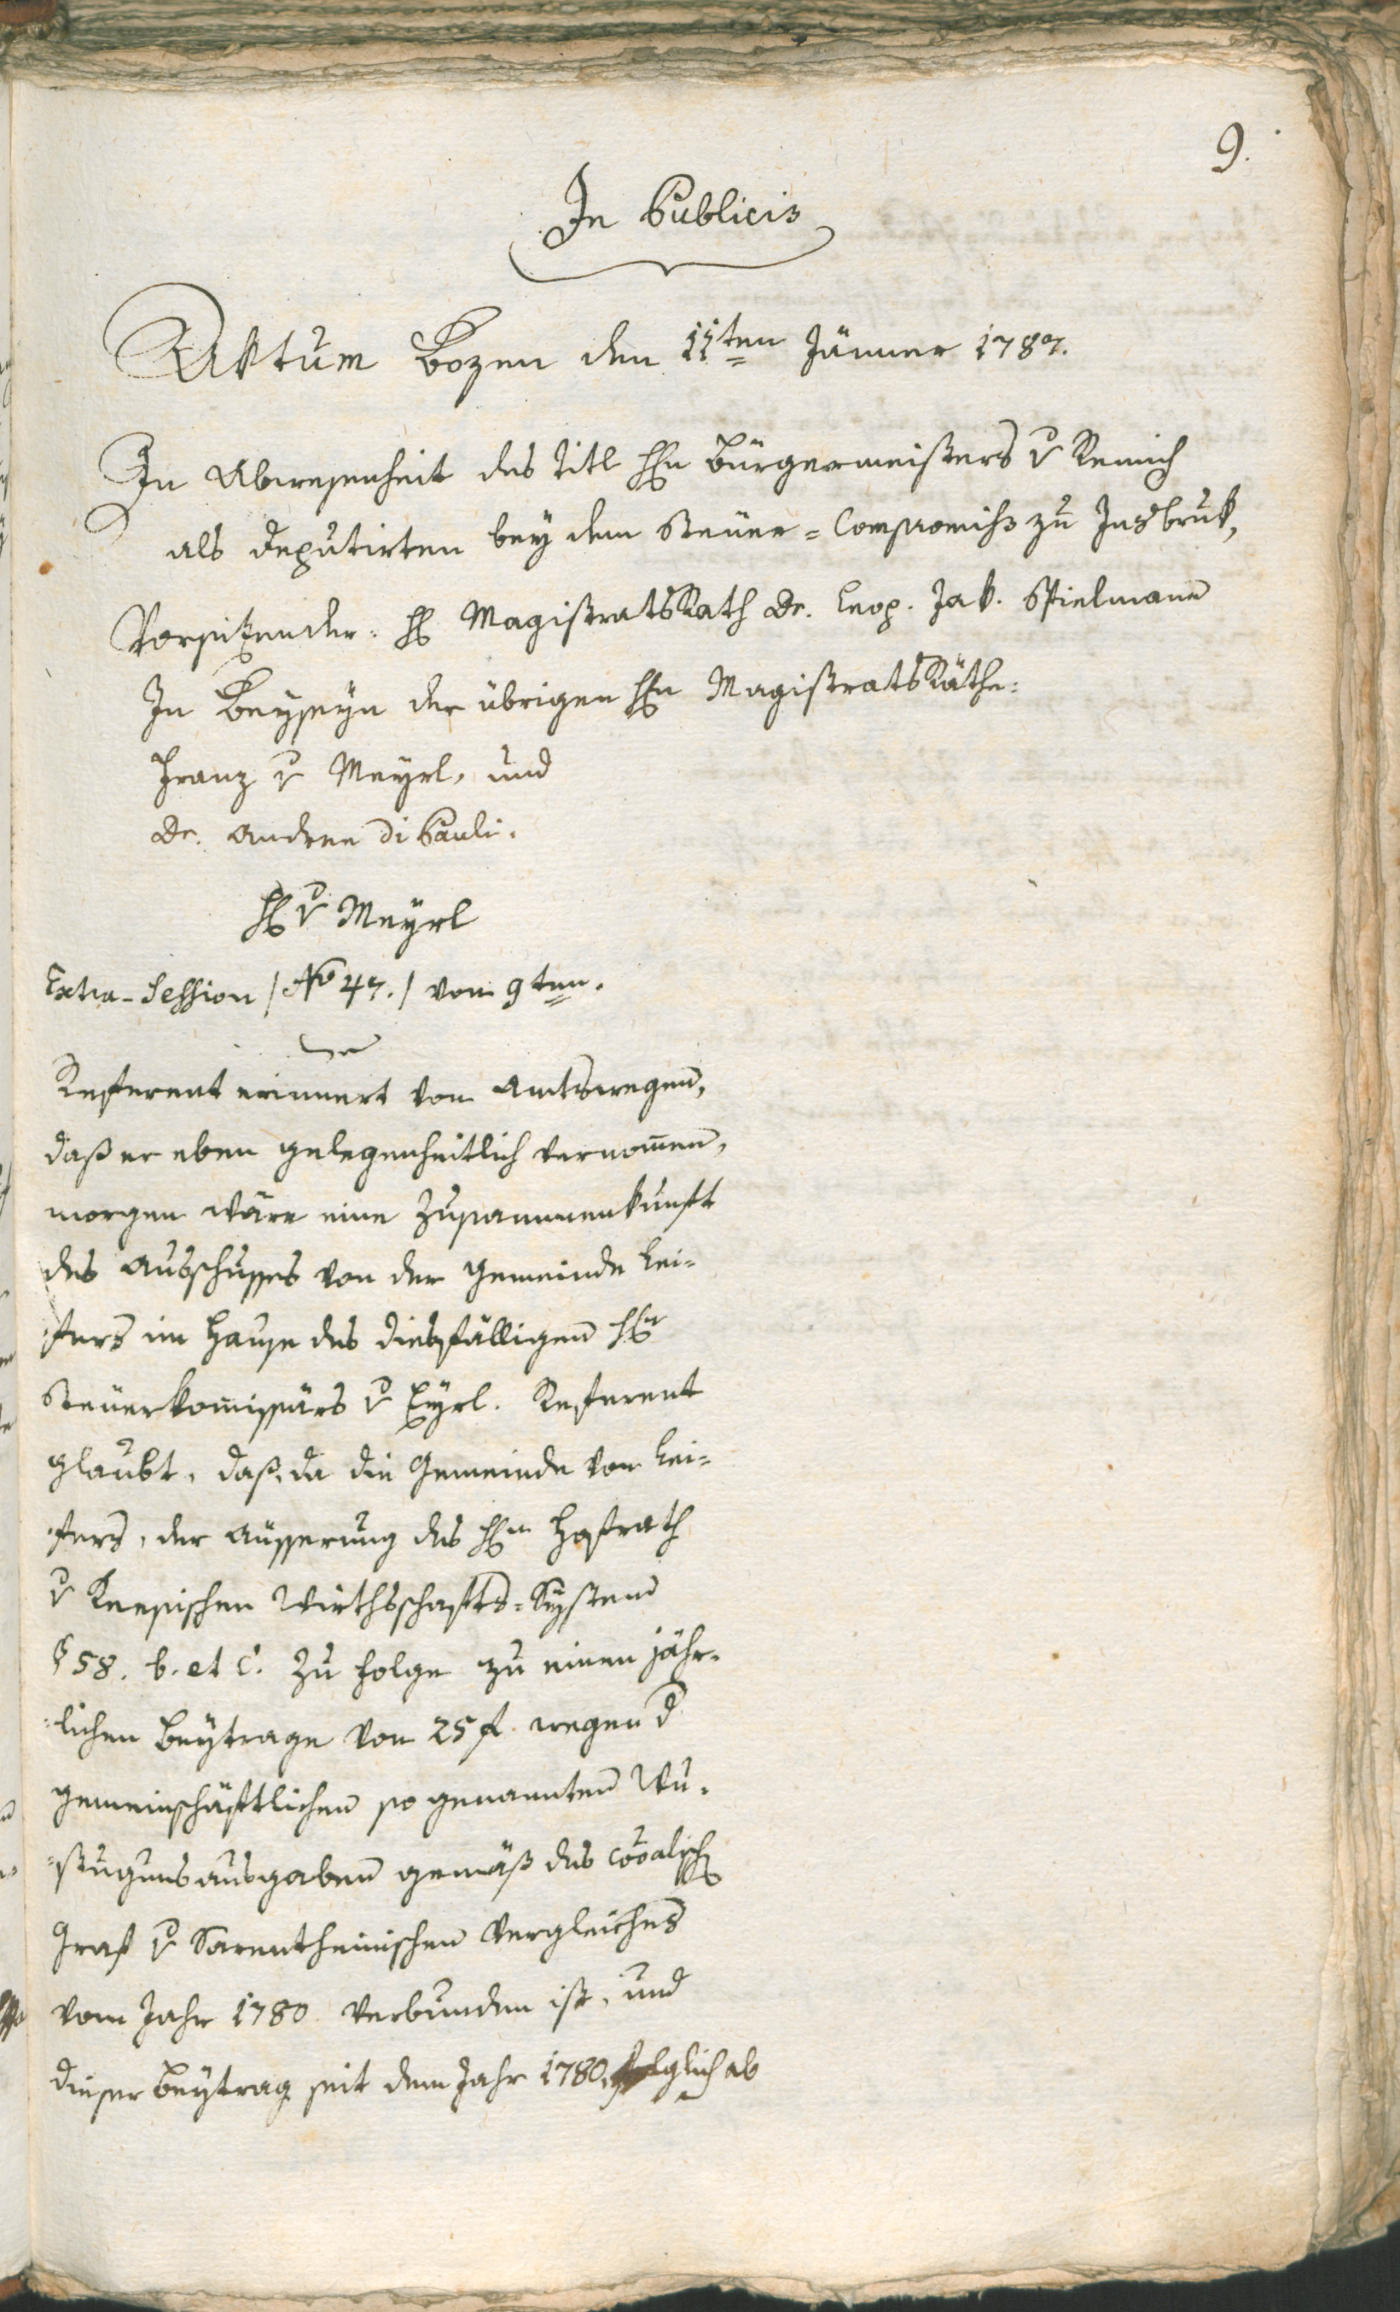 9.
In Publicis
Aktum Bozen den 11ten Jänner 1787.
In Abwesenheit des Titl Hn Bürgermeisters v Remich
als deputirten bey dem Steuer=Compromiss zu Insbruk,
Vorsitzender: H MagistratsRath Dr. Leop. Jak. Spielmann
In Beyseyn der übrigen Hn MagistratsRäthe:
Franz v Meyrl, und
Dr. Andree di Pauli.
H v Meyrl
Extra-Session /No 47./ vom 9ten.
Referent erinnert von Amtswegen,
daß er eben gelegenheitlich vernomen,
morgen wäre eine Zusammenkunft
des Ausschusses von der Gemeinde Lei=
=fers im Hause des diesfälligen Hn
Steuerkomissärs v Eyrl. Referent
glaubt, daß, da die Gemeinde von Lei=
=fers, der Äusserung des Hn Hofrath
v Keesischen Wirthschafts=Systems
§ 58. b. et c. zu folge zu einen jähr=
=lichen Beytrage von 25 f. wegen d
gemeinschäftlichen so genannten
=ausgaben gemäß des
Graf v Sarentheinischen Vergleiches
vom Jahr 1780 verbunden ist, und
dieser Beytrag seit dem Jahr 1780, folglich ab